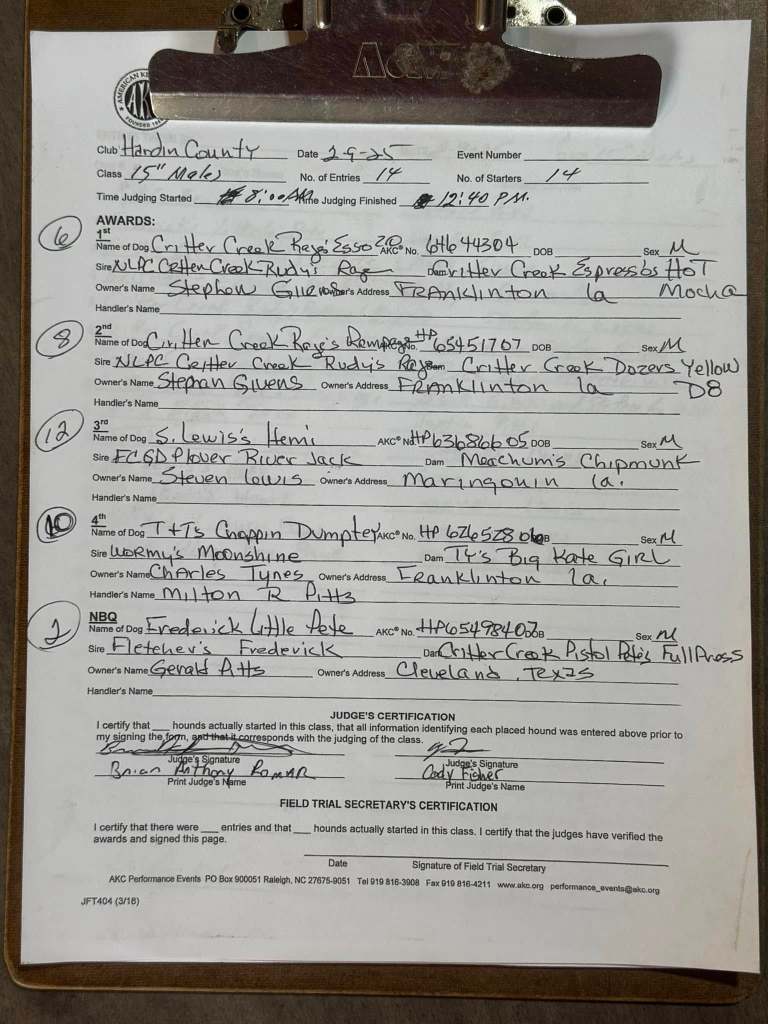 AMERICAN KE
AK
FOUNDED
Club Hardin County Date 2-9-25 Event Number
Class 15" Males No. of Entries 14 No. of Starters 14
Time Judging Started 8:00 AM Time Judging Finished 12:40 P.M.
AWARDS:
6
1st
Name of Dog Critter Creek Raye's AKC® No. 64644304 DOB Sex M
Sire NLPC Critter Creek Rudy's Ray Dam Critter Creek Espresso's HoT
Owner's Name Stephan Givens Owner's Address FRANKlinton la Mocha
Handler's Name
8
2nd
Name of Dog Critter Creek Raye's AKC® No. HP 65451707 DOB Sex M
Sire NLPC Critter Creek Rudy's Raye Dam Critter Creek Dozers Yellow
Owner's Name Stephan Givens Owner's Address FRANKlinton la D8
Handler's Name
12
3rd
Name of Dog S. Lewis's Hemi AKC® No. HP63686605 DOB Sex M
Sire FCGD Plover River Jack Dam Meachum's Chipmunk
Owner's Name Steven Lewis Owner's Address Maringouin la.
Handler's Name
10
4th
Name of Dog T+T's Choppin Dumptey AKC® No. HP DOB Sex M
Sire WORMY's Moonshine Dam TY's Big Kate GIRL
Owner's Name Charles Tynes Owner's Address Franklinton la.
Handler's Name Milton R Pitts
2
NBQ
Name of Dog Frederick Little Pete AKC® No. HP65498402 DOB Sex M
Sire Fletcher's Frederick Dam Critter Creek Pistol Pete's Full
Owner's Name Gerald Atts Owner's Address Cleveland, Texas
Handler's Name
JUDGE'S CERTIFICATION
I certify that ___ hounds actually started in this class, that all information identifying each placed hound was entered above prior to
my signing the form, and that it corresponds with the judging of the class.
Judge's Signature Judge's Signature
Brian Anthony Romar Cody Fisher
Print Judge's Name Print Judge's Name
FIELD TRIAL SECRETARY'S CERTIFICATION
I certify that there were ___ entries and that ___ hounds actually started in this class. I certify that the judges have verified the
awards and signed this page.
Date Signature of Field Trial Secretary
AKC Performance Events PO Box 900051 Raleigh, NC 27675-9051 Tel 919 816-3908 Fax 919 816-4211 www.akc.org performance_events@akc.org
JFT404 (3/16)